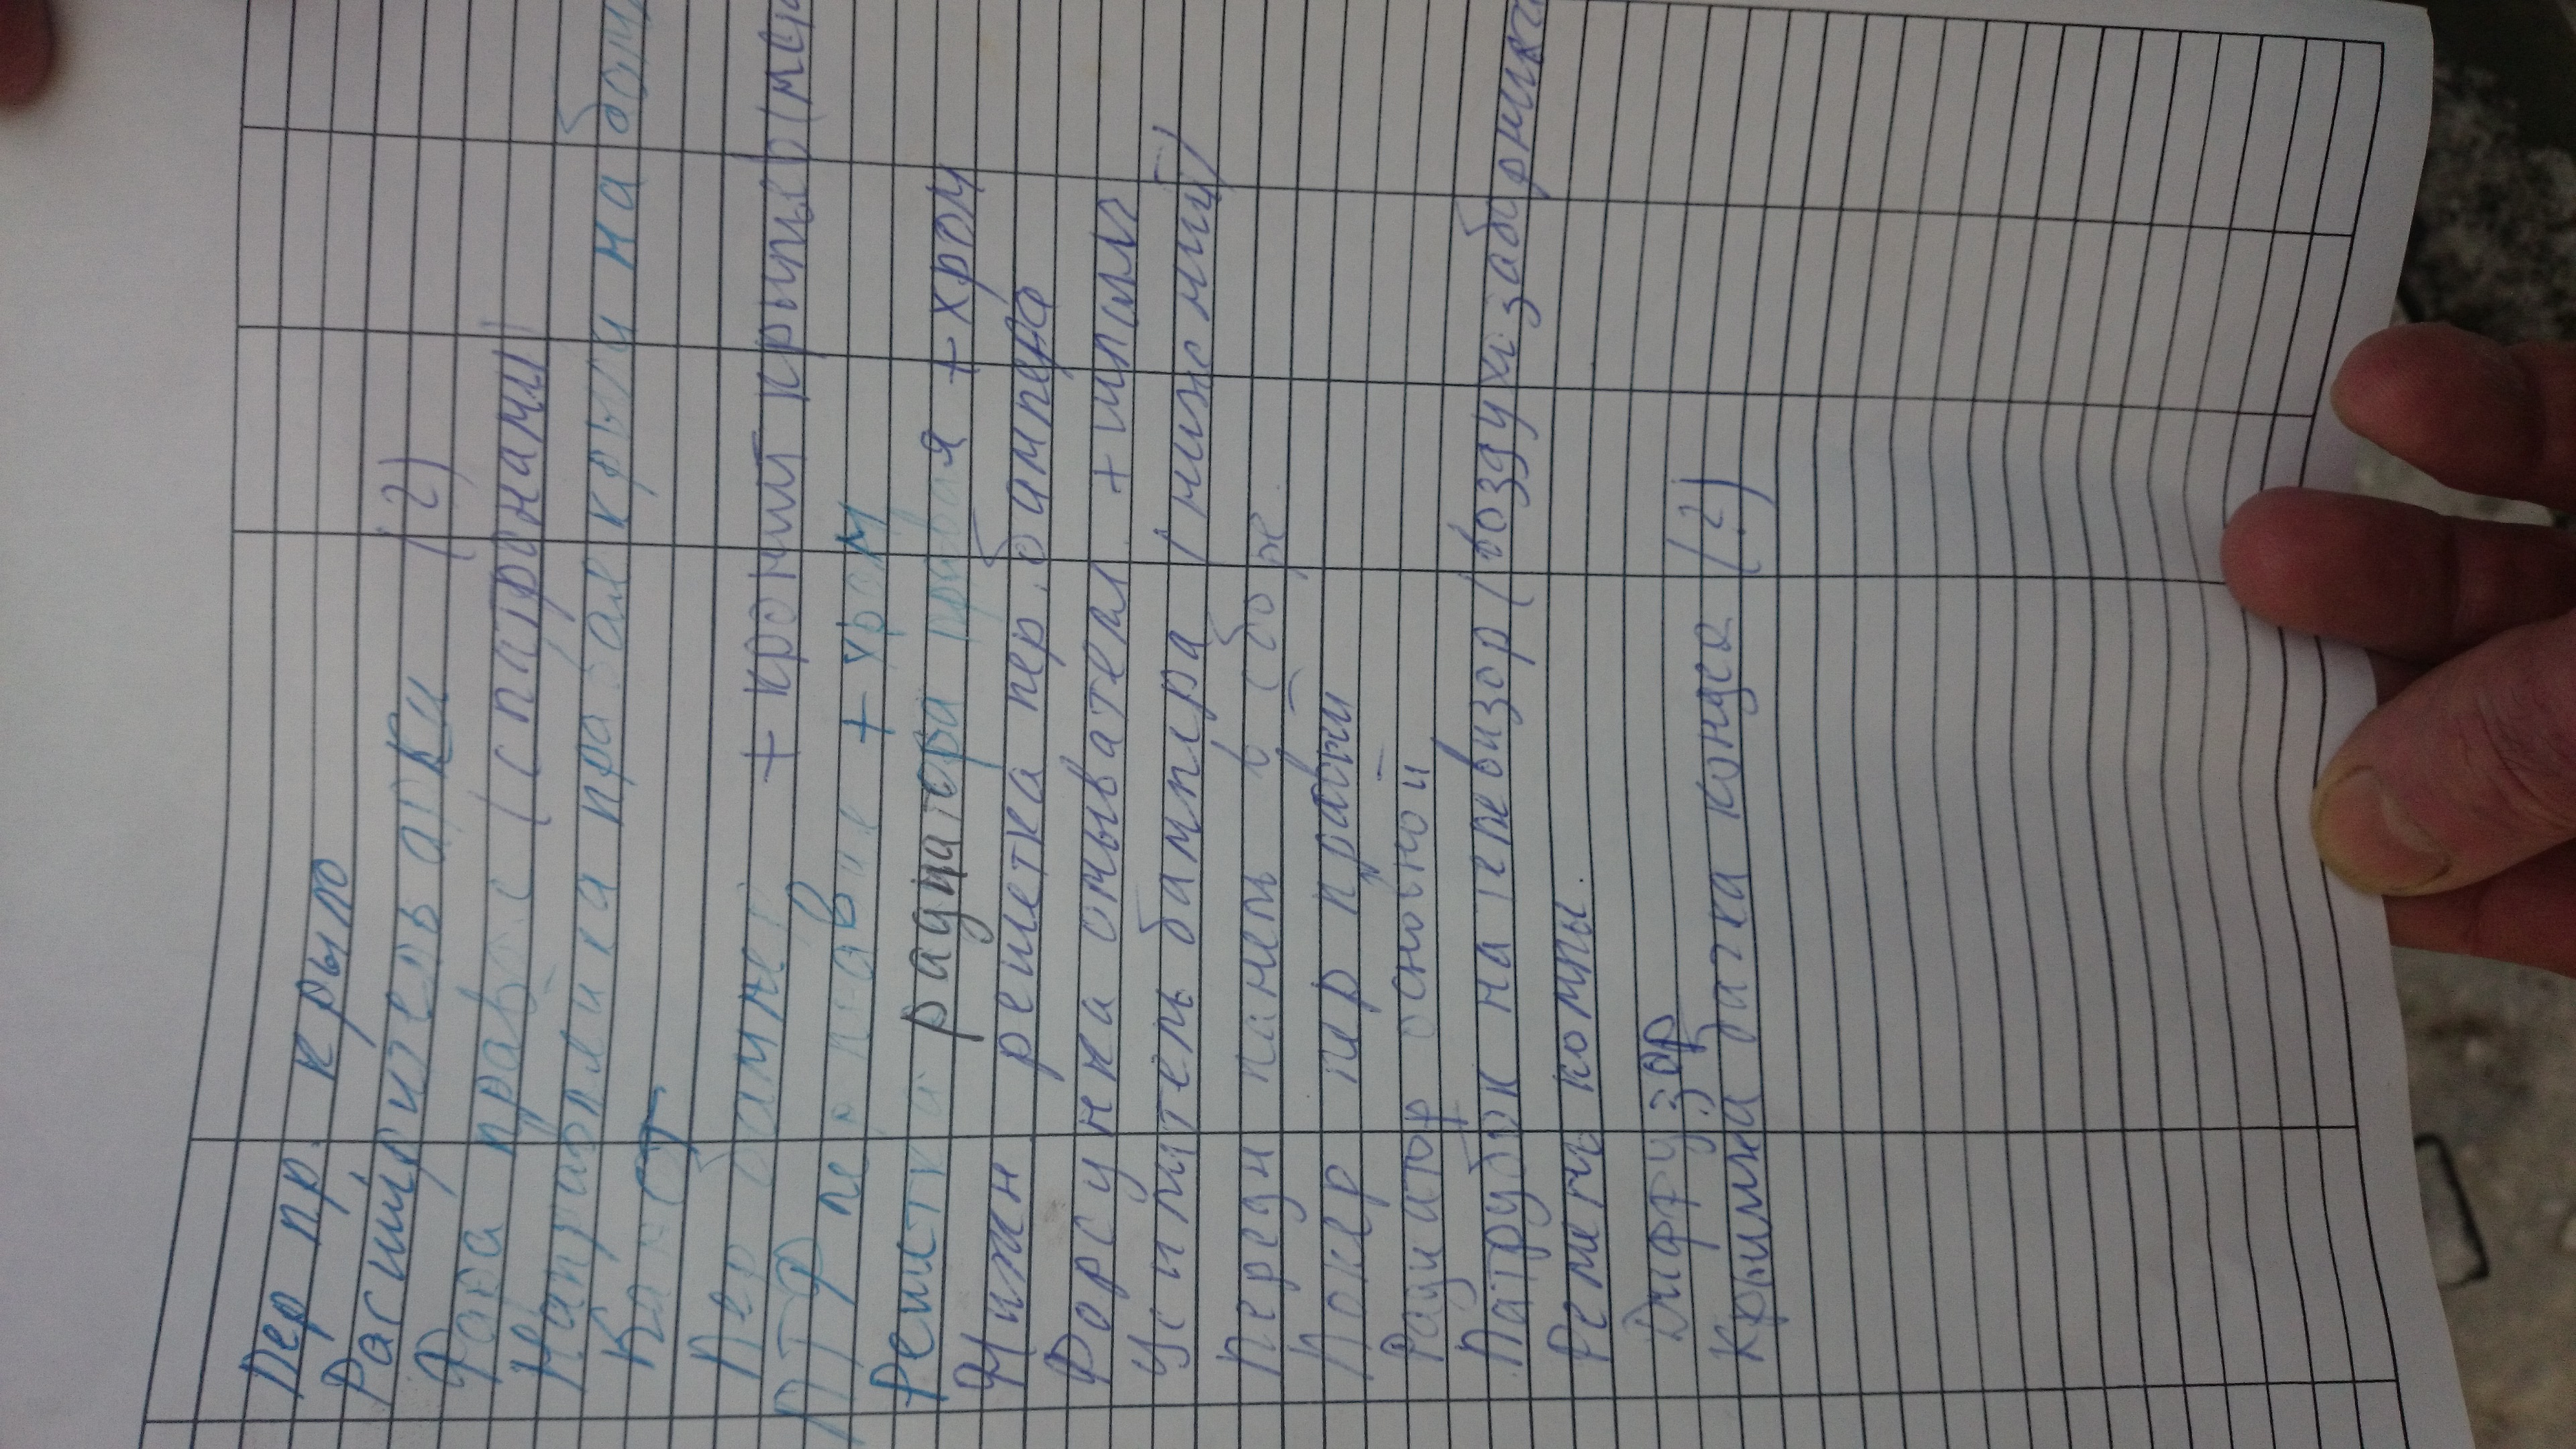 Пер пр. крыло
Расширитель арки (2)
Фара правая (с патронами)
Направляйка правая крыла на бампер
Капот
Пер бампер + кронш крыльев (мет
ПТФ левая + хром
Решетка радиатора правая + хром
Нижн решетка пер. бампера
Форсунка омывател + шланг
Усилитель бампера (нижний)
Передн панель в сборе
Локер пер правый
Радиатор основной
Патрубок на телевизор (воздухозаборника
Ремень компы.
Диффузор
Крышка бачка кондея (?)